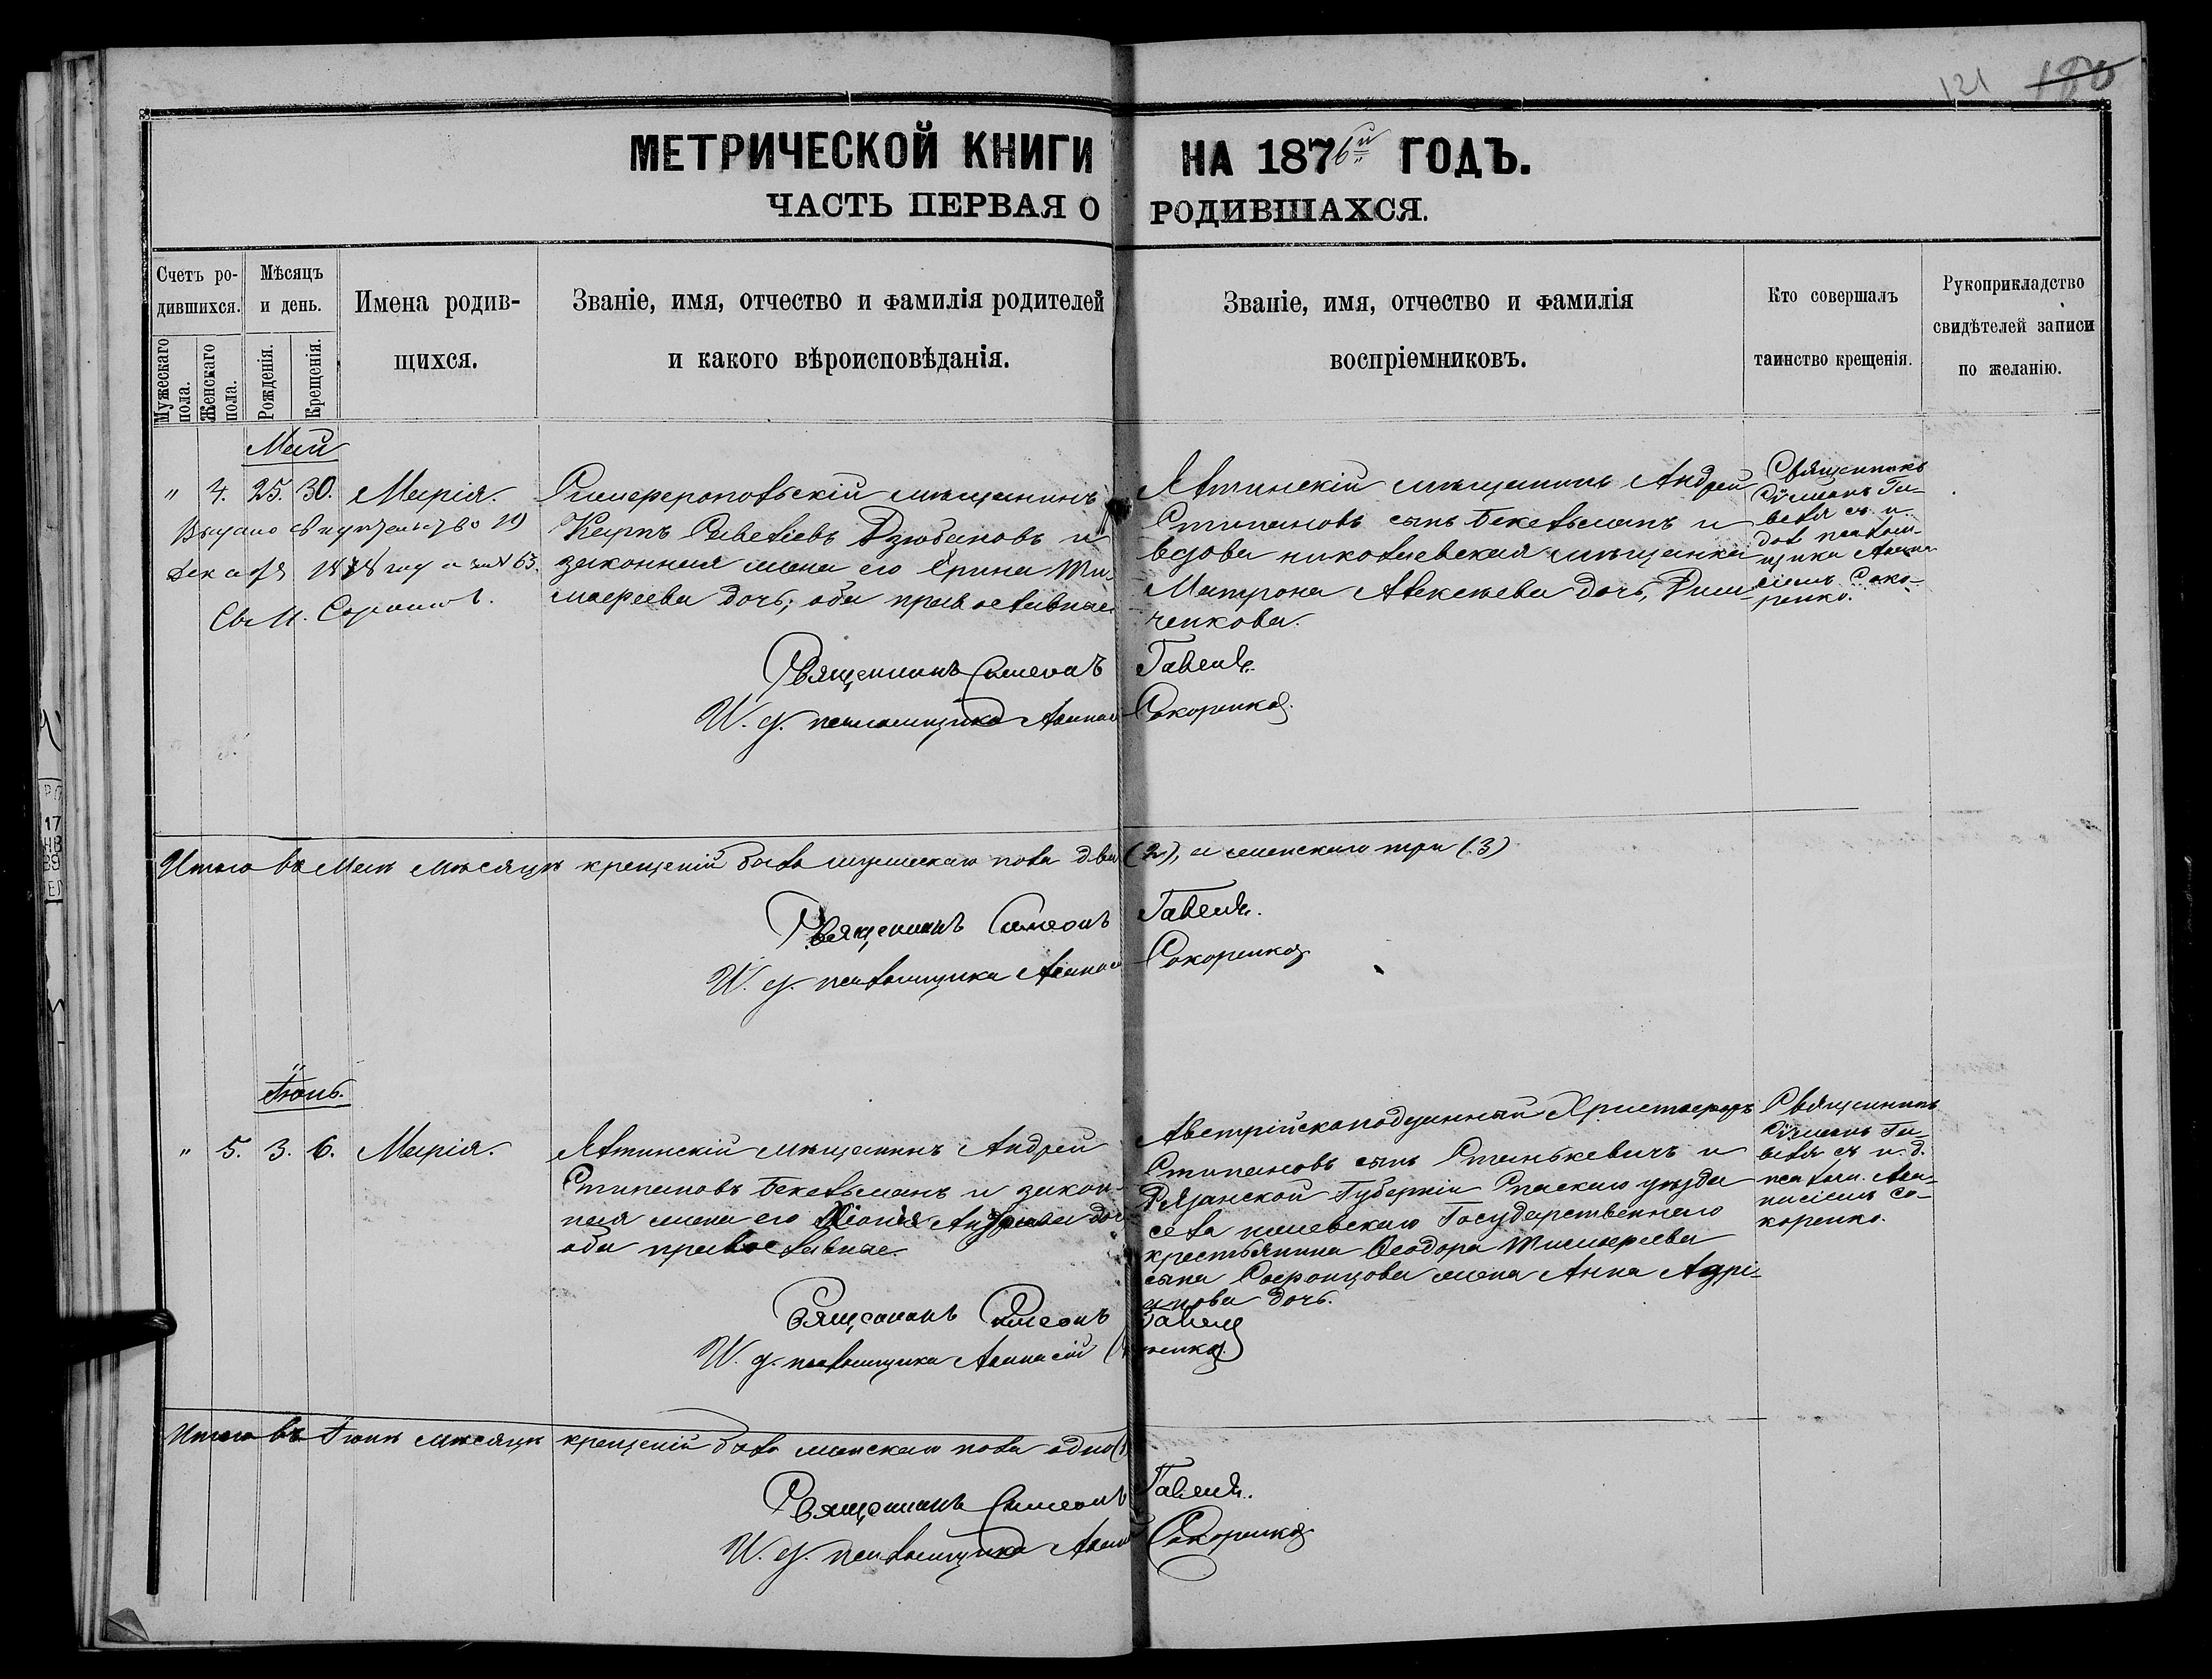 121 180
МЕТРИЧЕСКОЙ КНИГИ НА 1876й ГОДЪ.
ЧАСТЬ ПЕРВАЯ О РОДИВШАХСЯ.
Счетъ ро-
дившихся.
Мужескаго пола.
Женскаго пола.
Мѣсяцъ
и день.
Рожденія.
Крещенія.
Имена родив-
щихся.
Званіе, имя, отчество и фамилія родителей
и какого вѣроисповѣданія.
Званіе, имя, отчество и фамилія
воспріемниковъ.
Кто совершалъ
таинство крещенія.
Рукоприкладство
свидѣтелей записи
по желанію.
Май
" 4. 25. 30. Марія.
Выдано свидѣтельство 19
декабря 1878 года за № 63.
Св. М.
Симферопольскій мѣщанинъ
Карпъ Савеліевъ Дзюбановъ и
законная жена его Ирина Ти-
моѳеева дочь; оба православные
Ялтинскій мѣщанинъ Андрей
Стипановъ сынъ Бекельманъ и
вдова николаевская мѣщанка
Матрона Алексѣева дочь,
ченкова.
Священникъ
Сѵмеонъ Га-
съ и.
дол. псалом-
щика Аѳана-
сіемъ Соко-
ренко.
Священникъ Симеонъ
И. д. псаломщика Аѳанасій Сокоренко.
Итого въ Маѣ мѣсяцѣ крещеній было мужескаго пола два (2), а женскаго три (3)
Священникъ Симеонъ
И. д. псаломщика Аѳанасій Сокоренко
Іюнь.
" 5. 3. 6. Марія.
Ялтинскій мѣщанинъ Андрей
Стипановъ Бекельманъ и закон-
ная жена его Хіонія Андреева дочь
оба православные.
Австрійскоподданный Христофоръ
Стипановъ сынъ Станькевичъ и
Рязанской Губерніи Спаскаго уѣзда
села Государственнаго
крестьянина Ѳеодора Тимоѳеева
сына Сафонцова жена Анна Адрі-
анова дочь.
Священникъ
Сѵмеонъ Га-
съ и. д.
псалом. Аѳа-
насіемъ Со-
коренко.
Священникъ Симеонъ
И. д. псаломщика Аѳанасій
Итого въ Іюнѣ мѣсяцѣ крещеній было женскаго пола одно (1
Священникъ Симеонъ
И. д. псаломщика Аѳан Сокоренко